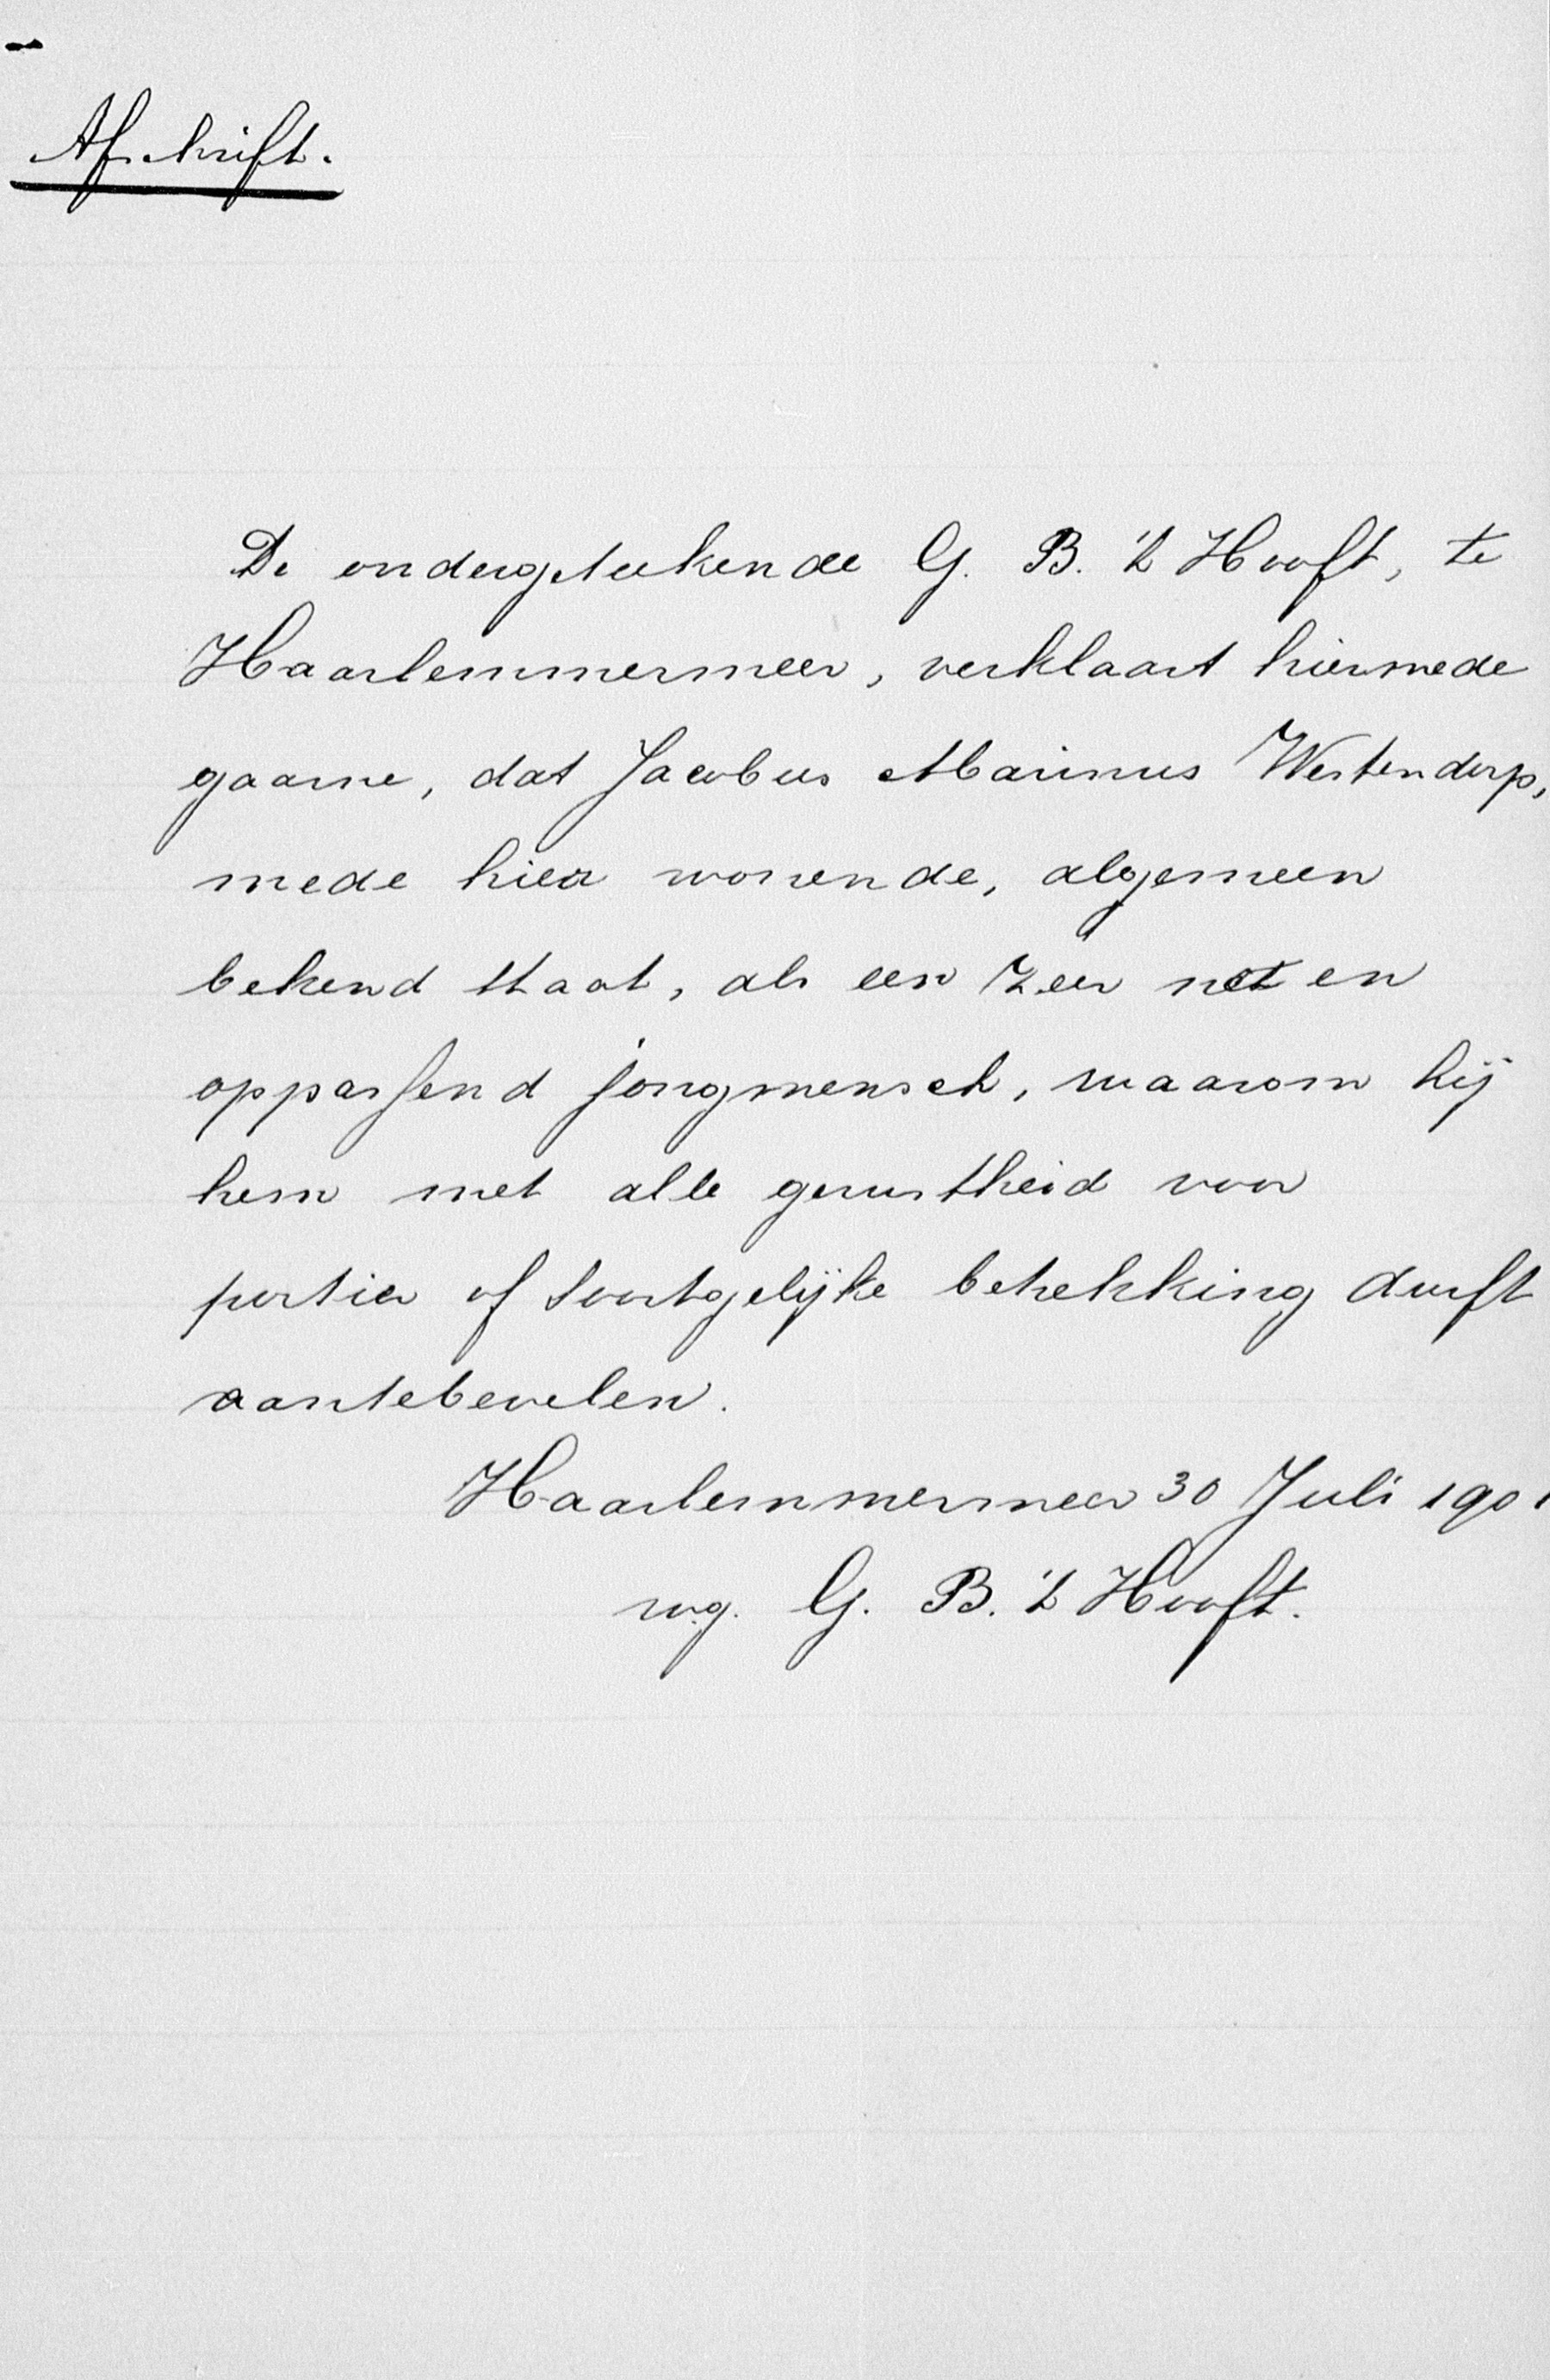 Afschrift.
De ondergeteekende G. B. 't Hooft, te
Haarlemmermeer, verklaart hiermede
gaarne, dat Jacobus Marinus Westendorp,
mede hier wonende, algemeen
bekend staat, als een zeer net en
oppassend jongmensch, waarom hij
hem met alle gerustheid voor
portier of soortgelijke betrekking durft
aantebevelen.
Haarlemmermeer 30 Juli 1901
w.g. G. B. 't Hooft.